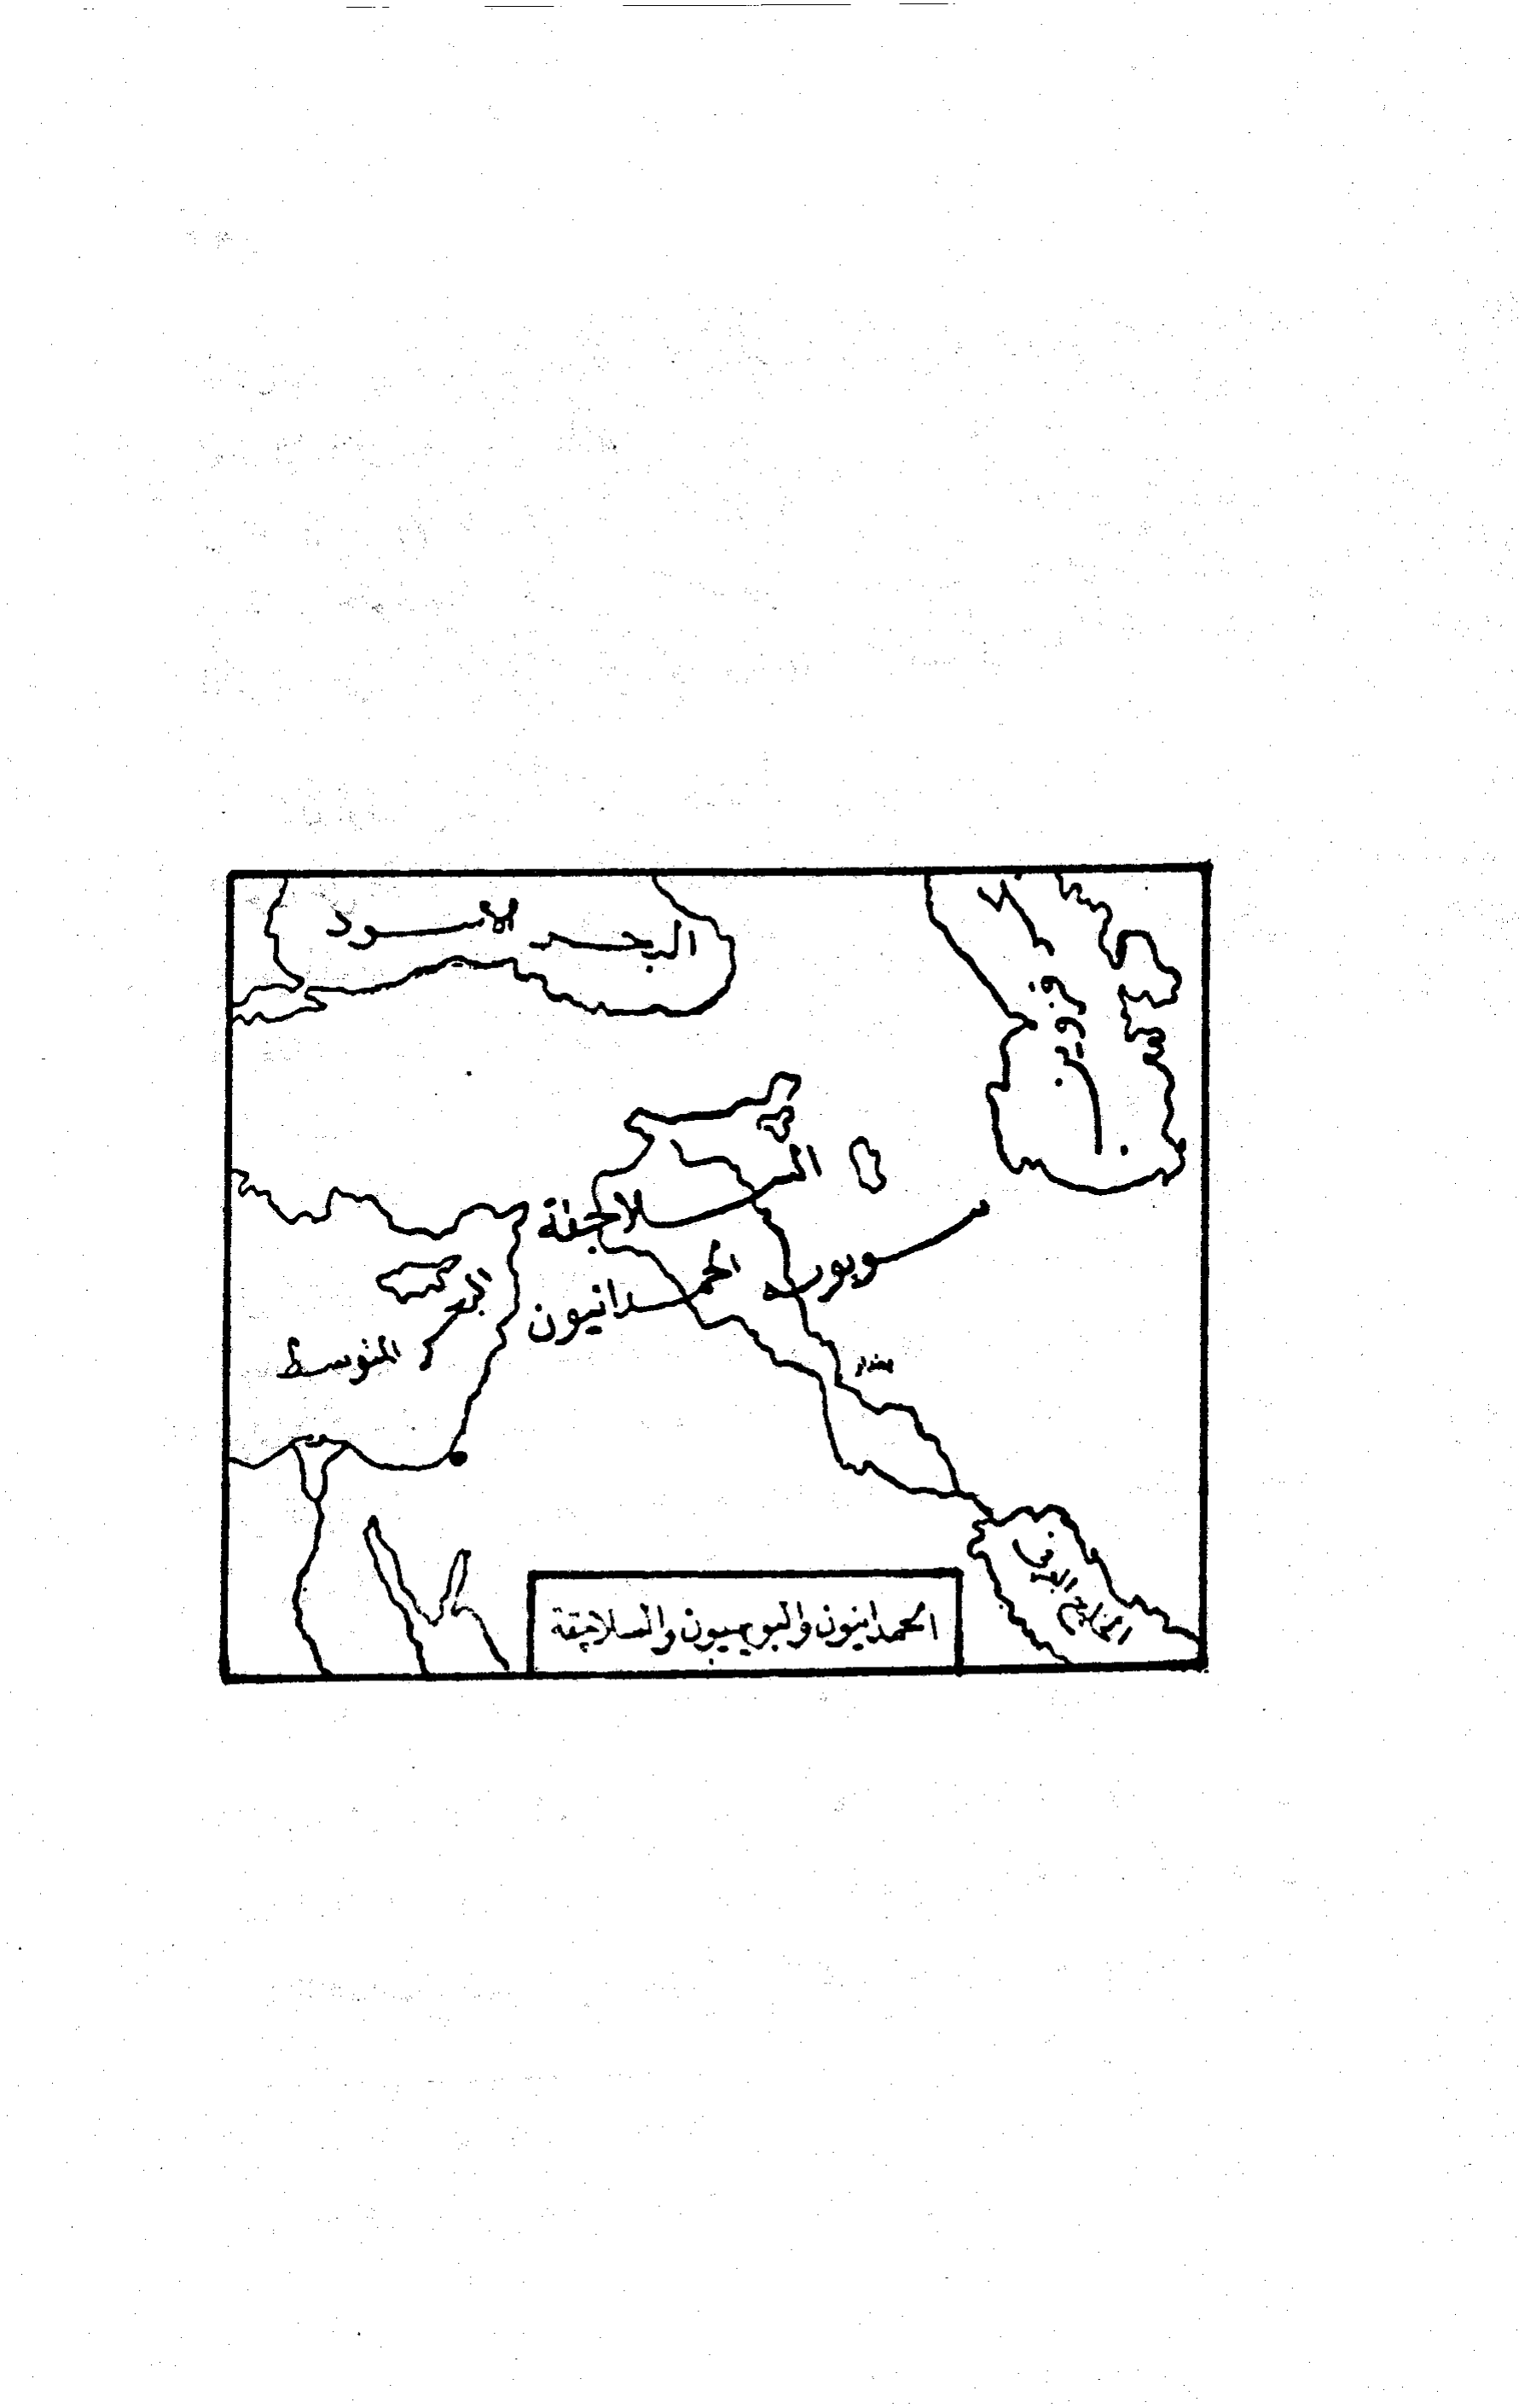 البحر الأسود
بحر قزوين
السلاجقة
بنو بويه
الحمدانيون
البحر
المتوسط
بغداد
الخليج العربي
الحمدانيون والبويهيون والسلاجقة